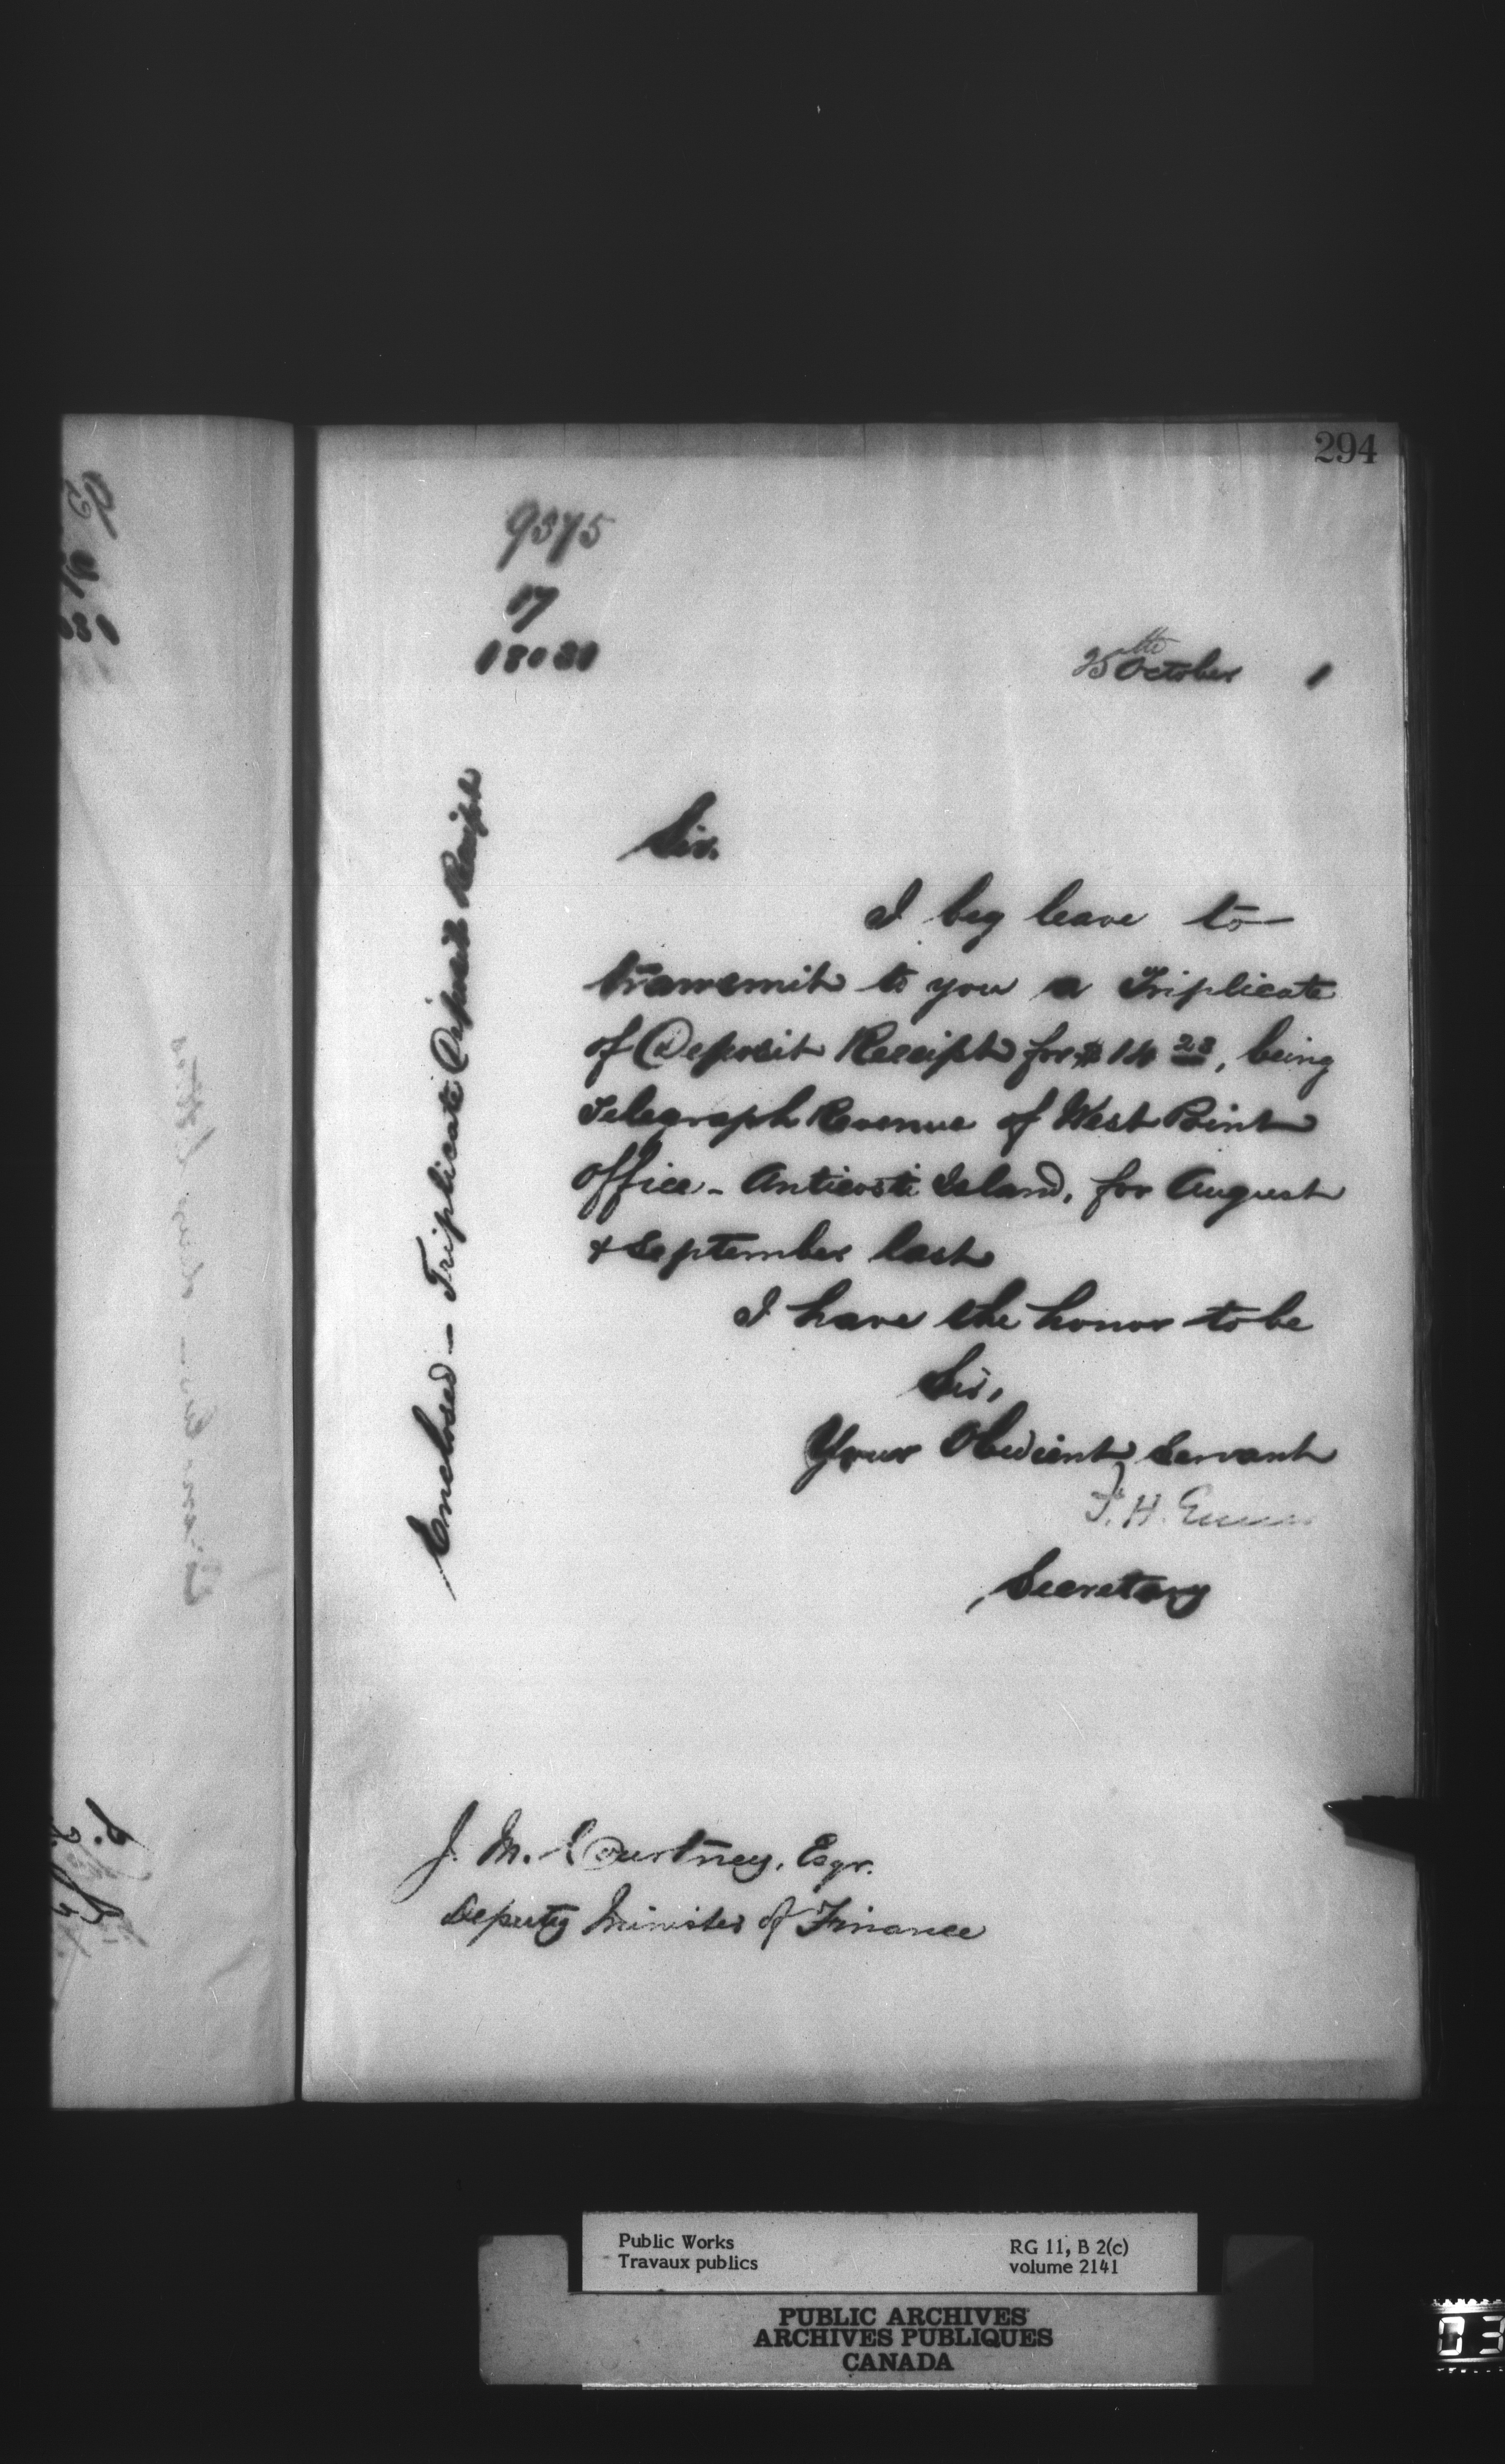 294
9375
17
18081
25th October 1
Enclosed — Triplicate Deposit Receipt
Sir,
I beg leave to
transmit to you a Triplicate
of Deposit Receipt for $ 14 28, being
Telegraph Revenue of West Point
Office - Anticosti Island, for August
& September last
I have the honor to be
Sir,
Your Obedient Servant
F. H. Ennis
Secretary
J. M. Courtney, Esqr.
Deputy Minister of Finance
Public Works
Travaux publics
RG 11, B 2(c)
volume 2141
PUBLIC ARCHIVES
ARCHIVES PUBLIQUES
CANADA
03